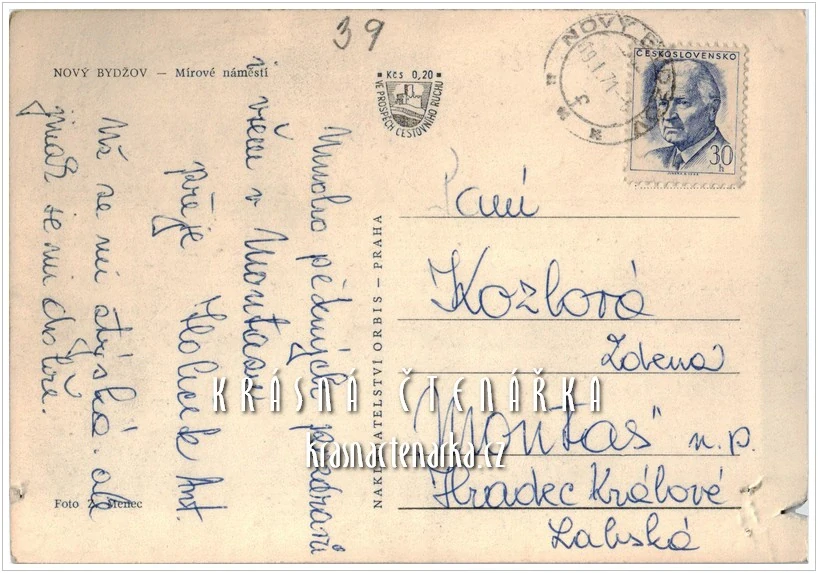 39
NOVÝ BYDŽOV — Mírové náměstí
Kčs 0,20
VE PROSPĚCH CESTOVNÍHO RUCHU
NOVÝ BYDŽOV
ČESKOSLOVENSKO
30 h
Mnoho pěkných pozdravů
všem v Montasu
přeje
Holicek Ant.
Už se mi stýská. ale
jinak se mi dobře.
NAKLADATELSTVÍ ORBIS — PRAHA
Paní
Kozlová
Zdena
"Montas" n.p.
Hradec Králové
Labská
Foto Z. Menec
KRÁSNÁ ČTENÁŘKA
krasnactenarka.cz